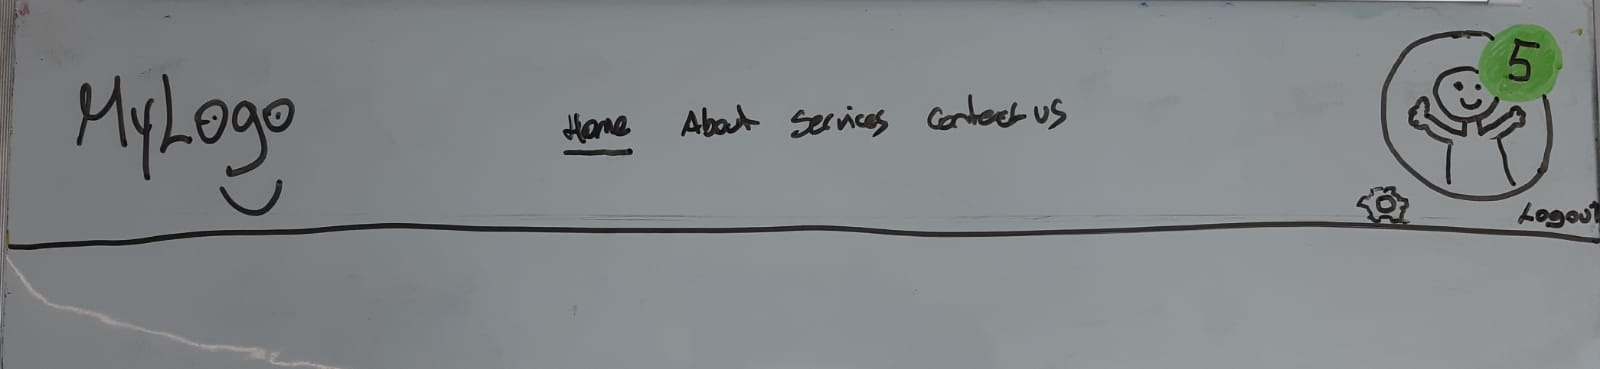 MyLogo
Home About Services Contact us
5
Logout